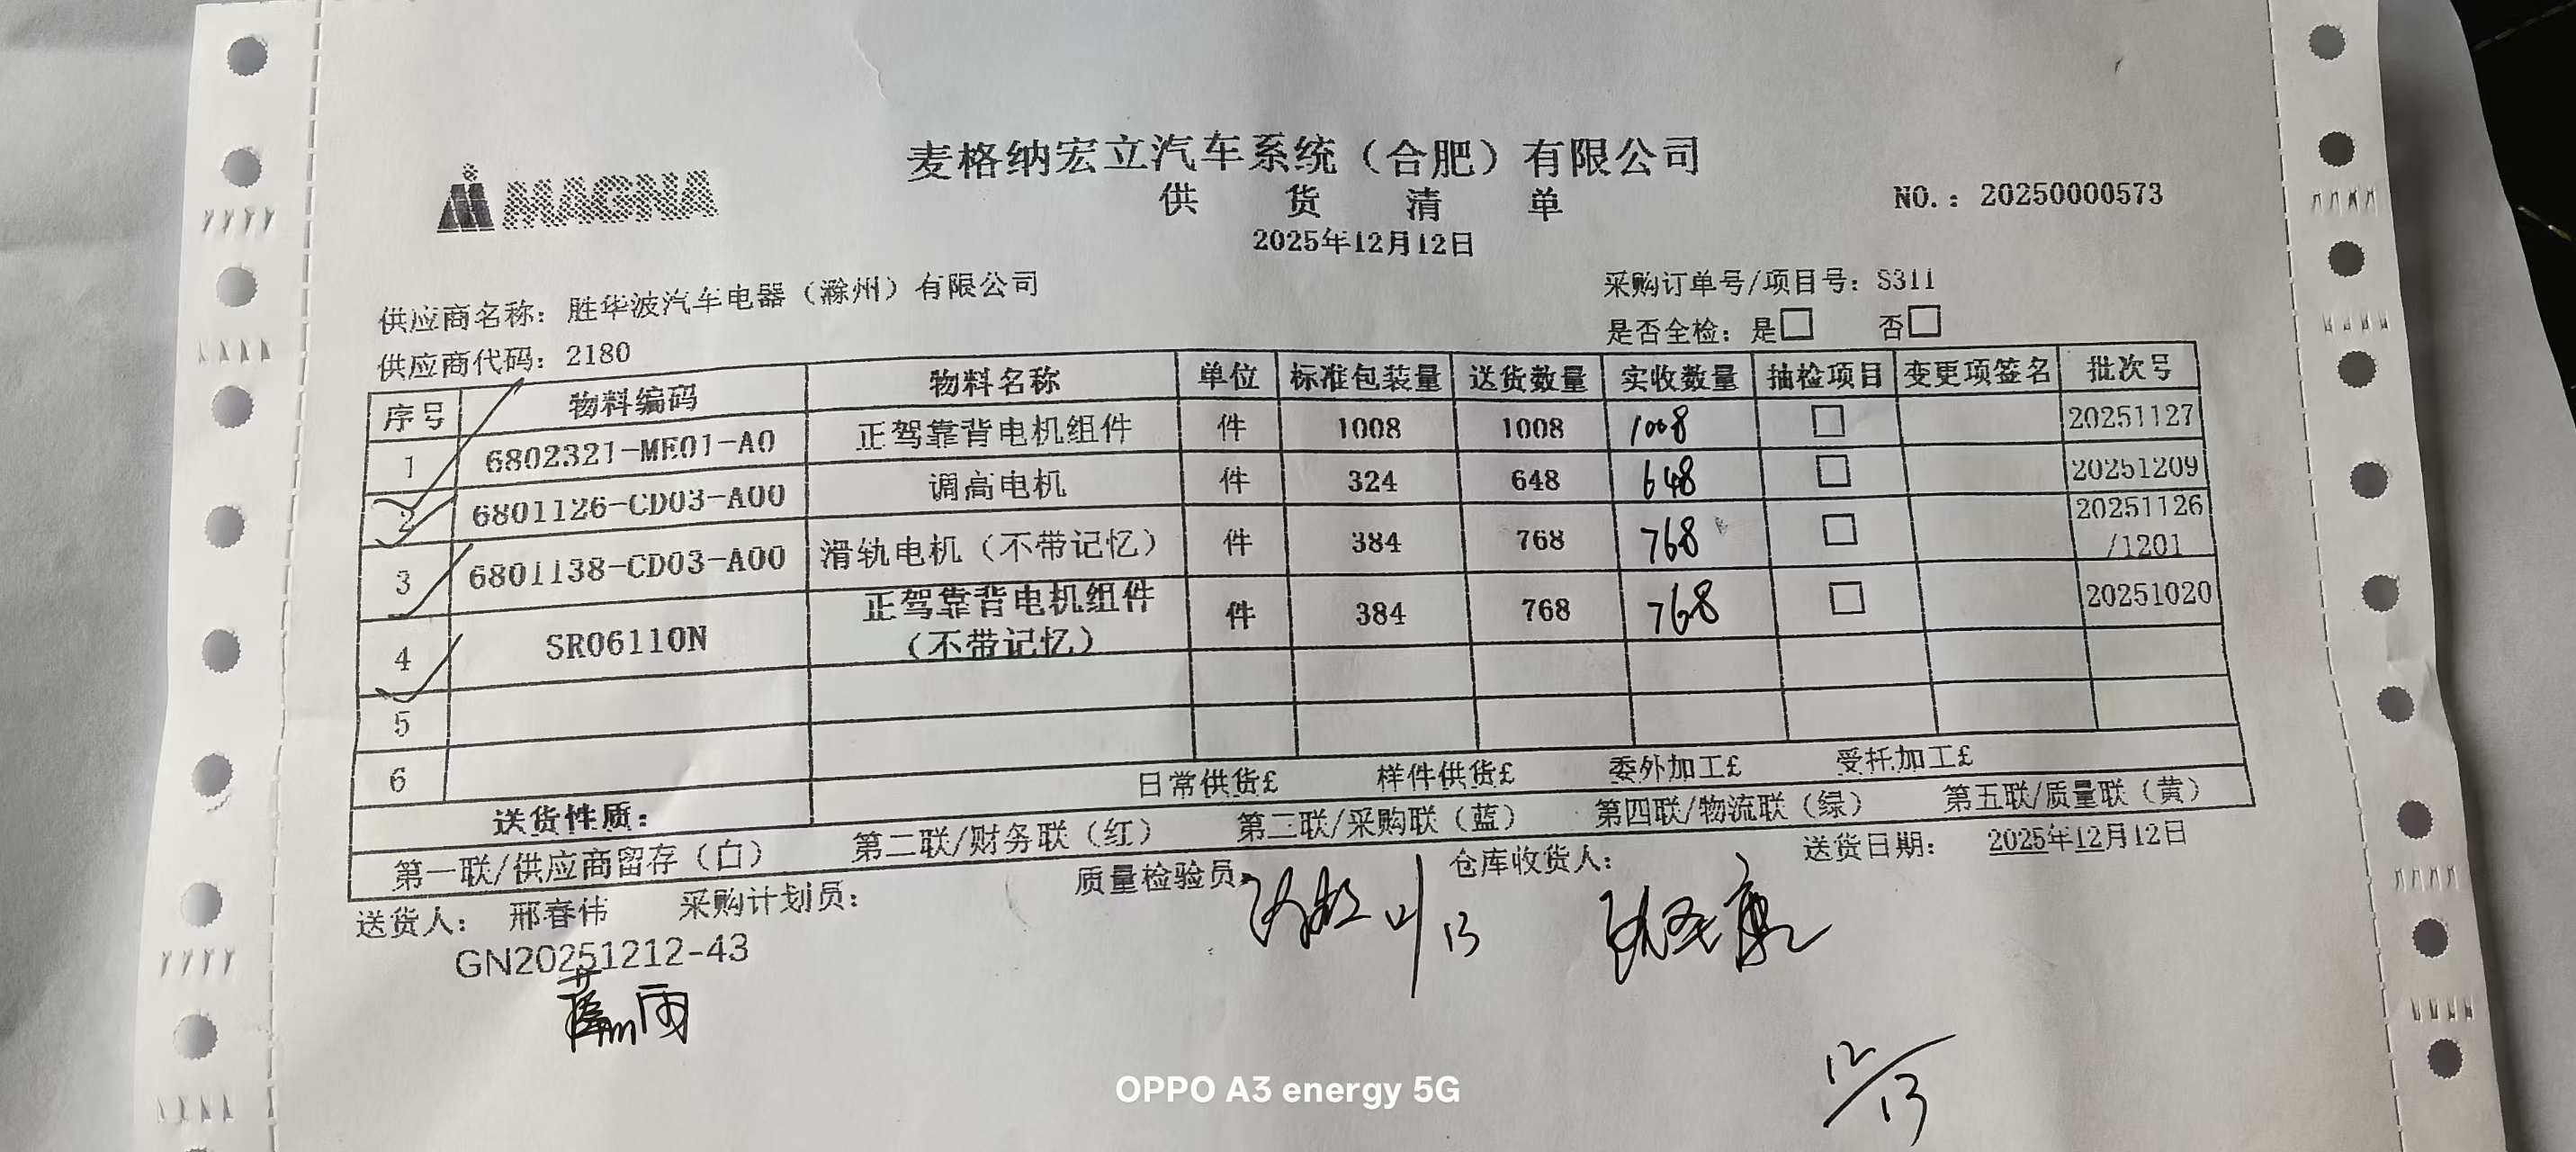 麦格纳宏立汽车系统（合肥）有限公司
MAGNA
供 货 清 单
NO.：20250000573
2025年12月12日
供应商名称：胜华波汽车电器（滁州）有限公司
采购订单号/项目号：S311
是否全检：是□ 否□
供应商代码：2180
序号 物料编码 物料名称 单位 标准包装量 送货数量 实收数量 抽检项目 变更项签名 批次号
1 6802321-ME01-A0 正驾靠背电机组件 件 1008 1008 1008 □ 20251127
2 6801126-CD03-A00 调高电机 件 324 648 648 □ 20251209
3 6801138-CD03-A00 滑轨电机（不带记忆） 件 384 768 768 □ 20251126
/1201
4 SR06110N 正驾靠背电机组件 件 384 768 768 □ 20251020
（不带记忆）
5
6
送货性质： 日常供货£ 样件供货£ 委外加工£ 受托加工£
第一联/供应商留存（白） 第二联/财务联（红） 第三联/采购联（蓝） 第四联/物流联（绿） 第五联/质量联（黄）
送货人：邢春伟 采购计划员： 质量检验员： 仓库收货人： 送货日期： 2025年12月12日
GN20251212-43
12/13
OPPO A3 energy 5G